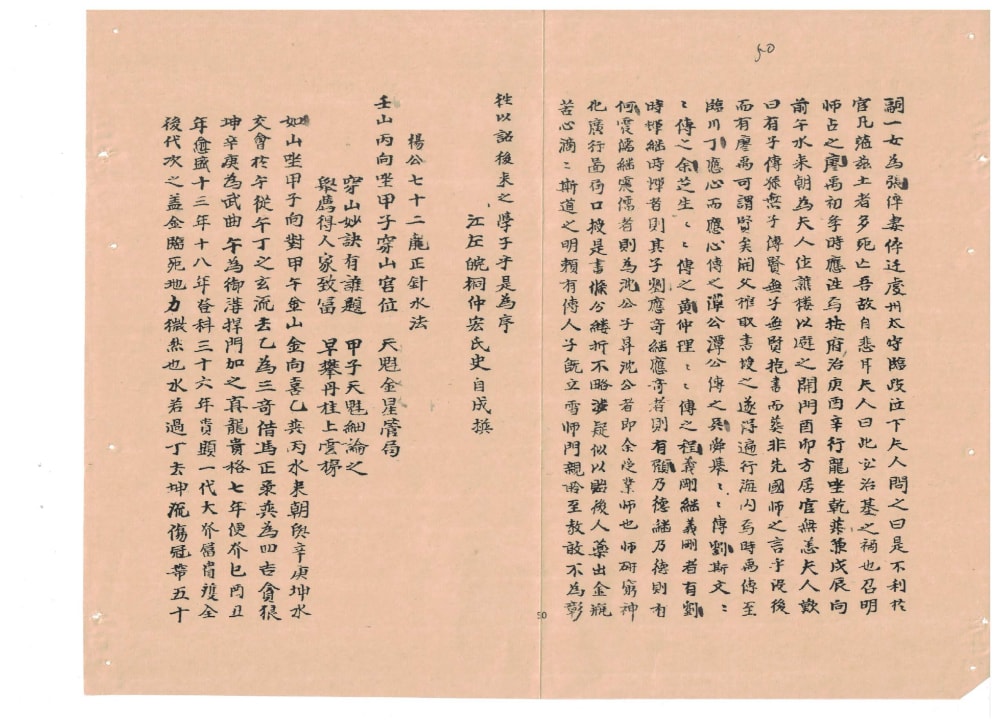 50
嗣一女為張倅妻倅迁虔州太守臨政泣下夫人問之曰是不利於
官凡蒞茲土者多死亡吾故自悲耳夫人曰此必治基之禍也召明
師占之廖禹初季時應迁与按府治庚酉辛行龍坐乾葬兼戌辰向
前午水来朝為夫人住譙楼以避之開門酉卯方居官無恙夫人歎
曰有子傳孫無子傳賢無子無賢抱書而葵非先國師之言乎没後
而有廖禹可謂賢矣開父棺取書授之遂得遍行海内与時禹傳至
臨川丁應心而應心傳之潭公潭公傳之吳舜舉〻〻傳劉斯文〻
〻傳之余芝生〻〻傳之黄仲理〻〻傳之程義剛継義剛者有劉
時埜継時煇者則其子劉應奇継應奇者則有顧乃德継乃德則有
何雲儒継雲儒者則為沈公子昇沈公者即余受業師也師研窮神
化廣行圖局口授是書條分縷折不略涉疑似以貽後人藥出金瓶
苦心滴〻斯道之明頼有傳人子旣立雪師門親聆至教敢不為彰
50
牲以詔後来之學子乎是為序
江左皖桐仲宏氏史自成撰
楊公七十二龍正針水法
穿山妙訣有誰題 甲子天魁細論之
舉薦得人家致富 早攀丹桂上雲梯
壬山丙向坐甲子穿山官位 天魁金星營局
如山坐甲子向對甲午金山金向喜乙巽丙水来朝與辛庚坤水
交會於午從午丁之玄流去乙為三奇借馬正乗巽為四吉貪狼
坤辛庚為武曲午為御溝捍門加之真龍貴格七年便發巳酉丑
年愈盛十三年十八年登科三十六年貴顕一代大發富貴雙全
後代次之盖金臨死地力微然也水若過丁去坤流傷冠帯五十